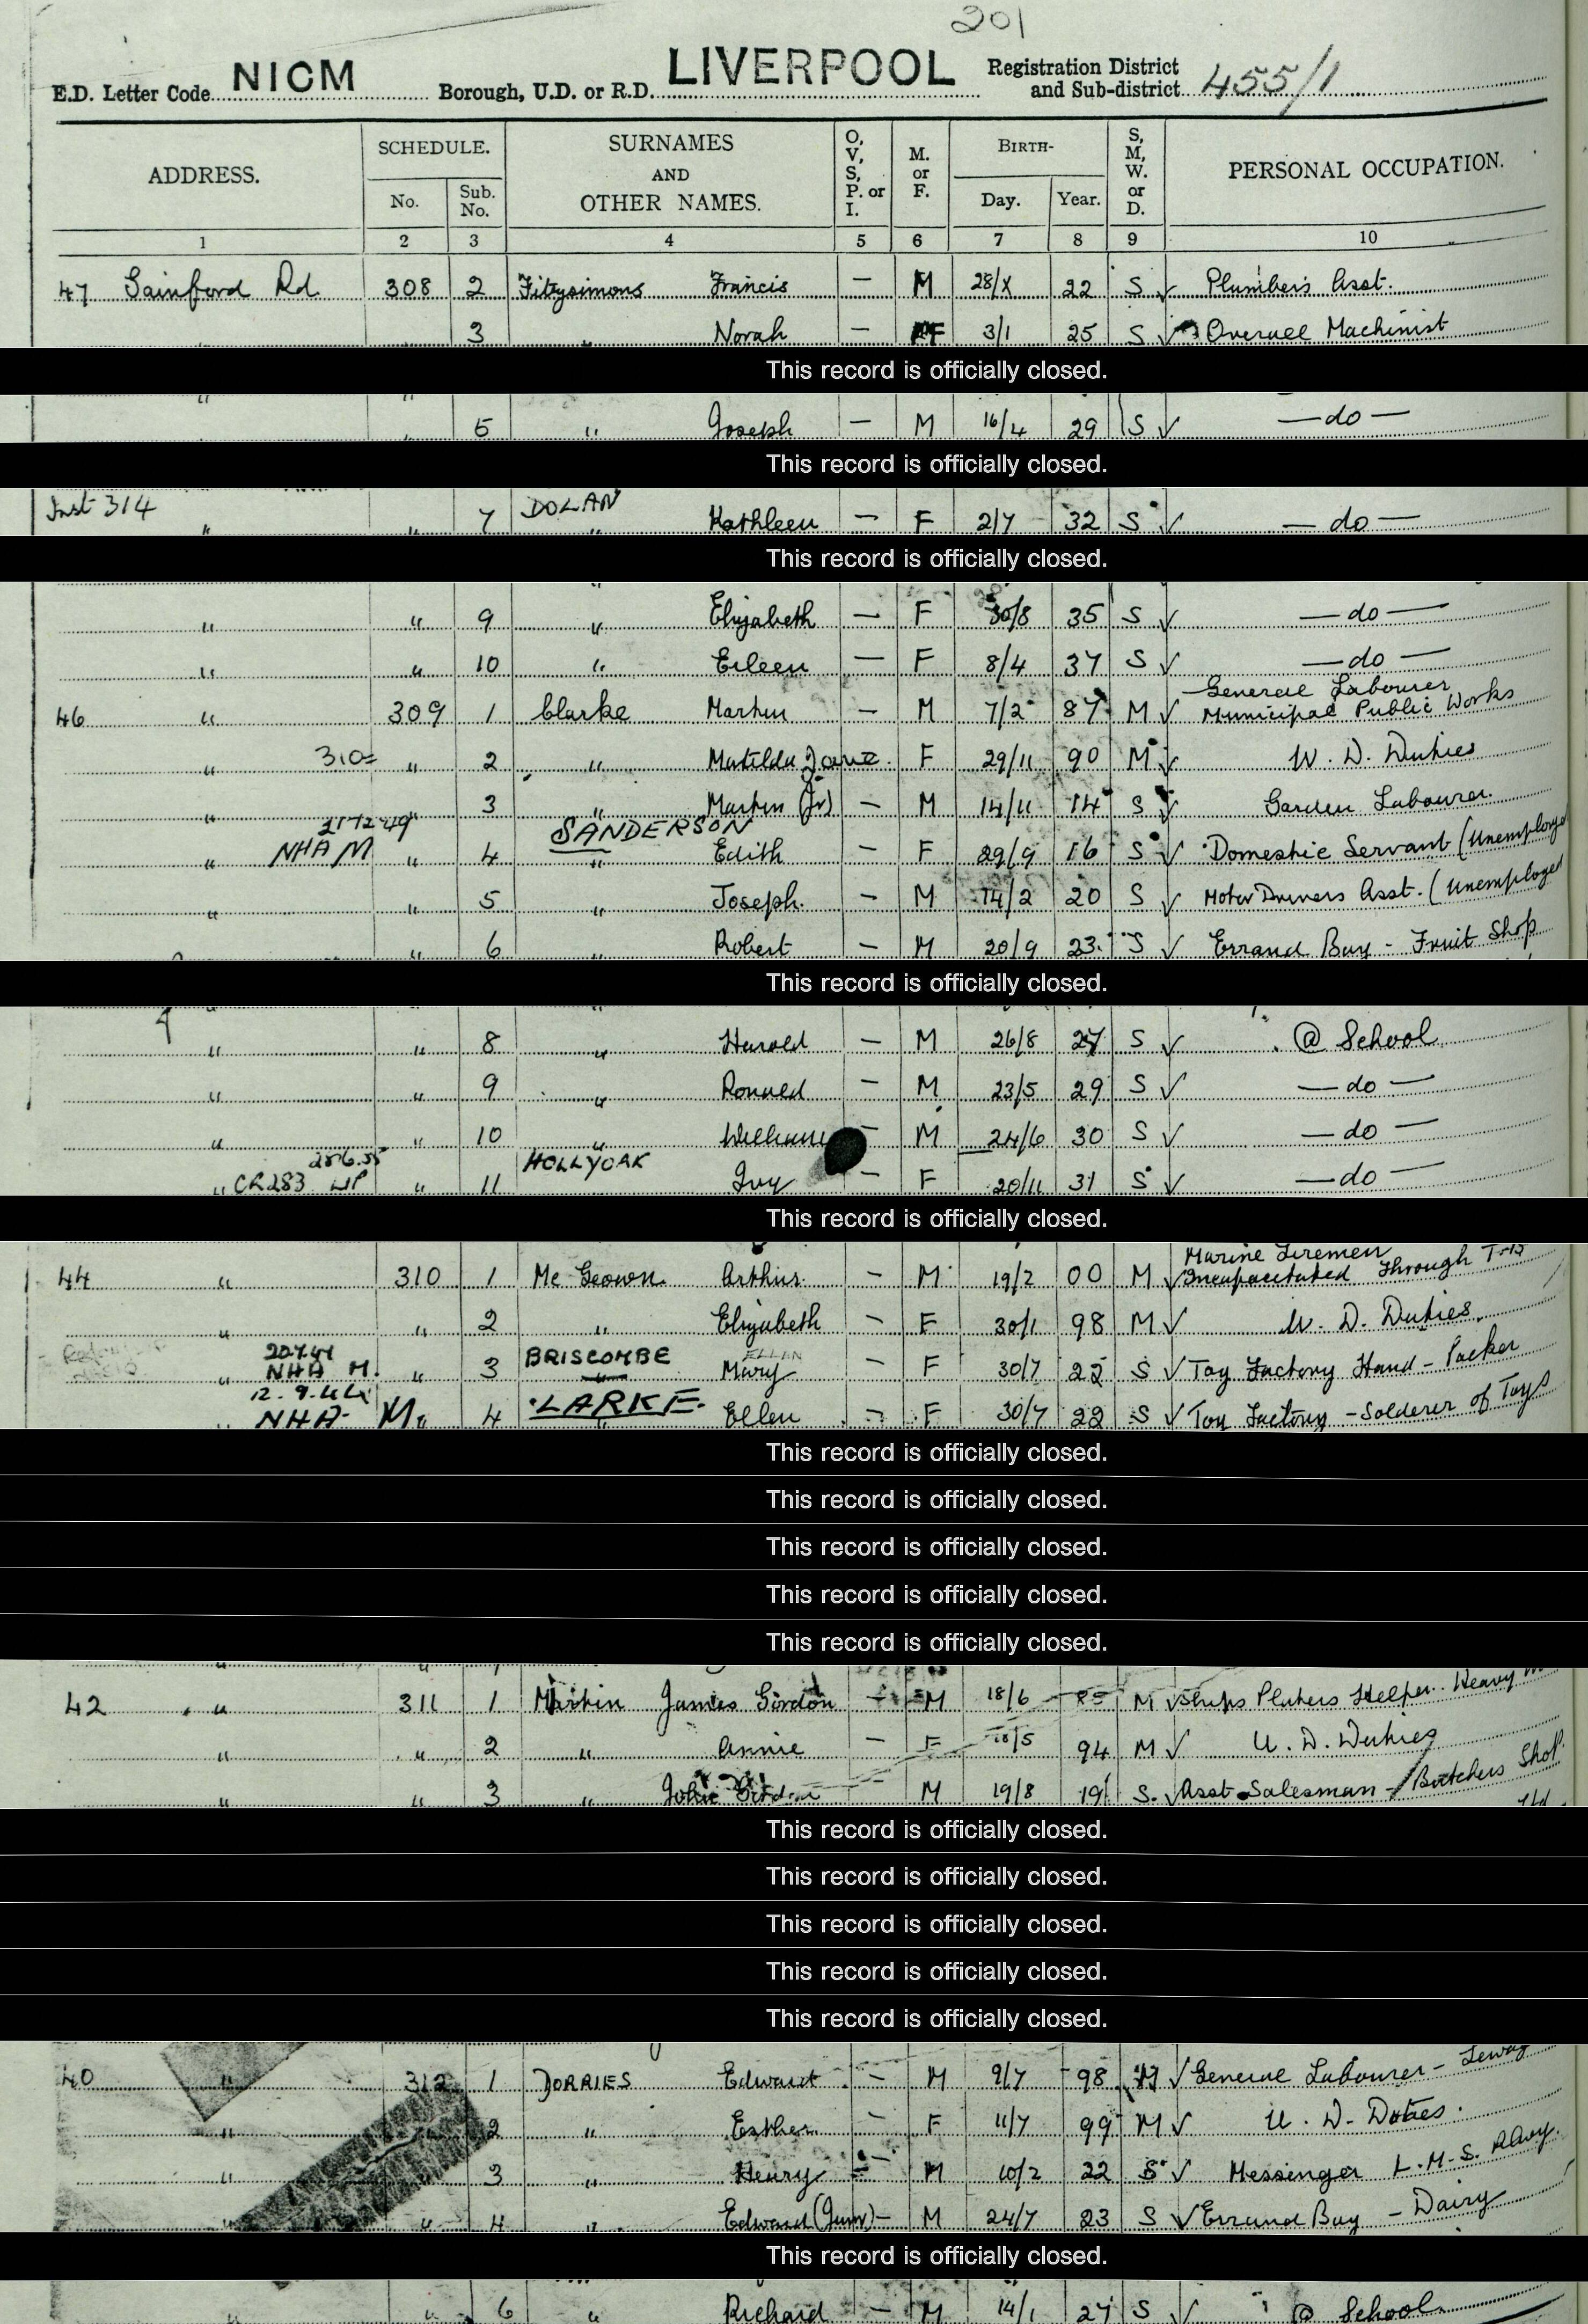 201
E.D. Letter Code NICM Borough, U.D. or R.D. LIVERPOOL Registration District and Sub-district 455/1
ADDRESS. SCHEDULE. No. Sub. No. SURNAMES AND OTHER NAMES. O, V, S, P. or I. M. or F. BIRTH- Day. Year. S, M, W. or D. PERSONAL OCCUPATION.
1 2 3 4 5 6 7 8 9 10
47 Gainford Rd 308 2 Fitzsimons Francis — M 28/X 22 S ✓ Plumbers Asst.
3 " Norah — F 3/1 25 S ✓ Overall Machinist
This record is officially closed.
" " 5 " Joseph — M 16/4 29 S ✓ — do —
This record is officially closed.
Inst 314 DOLAN
" " 7 " Kathleen — F 2/7 32 S ✓ — do —
This record is officially closed.
" " 9 " Elizabeth — F 30/8 35 S ✓ — do —
" " 10 " Eileen — F 8/4 37 S ✓ — do —
General Labourer
46 " 309 1 Clarke Martin — M 7/2 87 M ✓ Municipal Public Works
" 310 " 2 " Matilda Jane F 29/11 90 M ✓ U. D. Duties
" " 3 " Martin (Jr) — M 14/11 14 S ✓ Garden Labourer.
SANDERSON
" NHA M " 4 " Edith — F 29/9 16 S ✓ Domestic Servant (Unemployed
" " 5 " Joseph. — M 14/2 20 S ✓ Motor Drivers Asst. (Unemployed
" 6 " Robert — M 20/9 23 S ✓ Errand Boy - Fruit Shop
This record is officially closed.
" " 8 " Harold — M 26/8 27 S ✓ @ School
" " 9 " Ronald — M 23/5 29 S ✓ — do —
" " 10 " William — M 24/6 30 S ✓ — do —
HOLLYOAK
" CR283 " 11 Ivy — F 20/11 31 S ✓ — do —
This record is officially closed.
Marine Firemen
44 " 310 1 Mc Geown Arthur — M 19/2 00 M ✓ Incapacitated through
" " 2 " Elizabeth — F 30/1 98 M ✓ U. D. Duties
20.7.41 BRISCOMBE ELLEN
" NHA M. " 3 " Mary — F 30/7 22 S ✓ Toy Factory Hand - Packer
LARKE
" NHA M. " 4 " Ellen — F 30/7 22 S ✓ Toy Factory - Solderer of Toys
This record is officially closed.
This record is officially closed.
This record is officially closed.
This record is officially closed.
This record is officially closed.
42 " 311 1 Martin James Gordon — M 18/6 M ✓ Ships Platers Helper Heavy
" " 2 " Annie — F 18/5 94 M ✓ U. D. Duties
" " 3 " John M 19/8 19 S. ✓ Asst Salesman - Butchers Shop
This record is officially closed.
This record is officially closed.
This record is officially closed.
This record is officially closed.
This record is officially closed.
40 " 312 1 DORRIES Edward — M 9/7 98 M ✓ General Labourer -
" 2 " Esther — F 11/7 99 M ✓ U. D. Duties.
" 3 " Henry — M 10/2 22 S ✓ Messinger L.M.S. Rlwy.
" " 4 " Edward (Junr) — M 24/7 23 S ✓ Errand Boy - Dairy
This record is officially closed.
" " 6 " Richard — M 14/1 27 S ✓ @ School